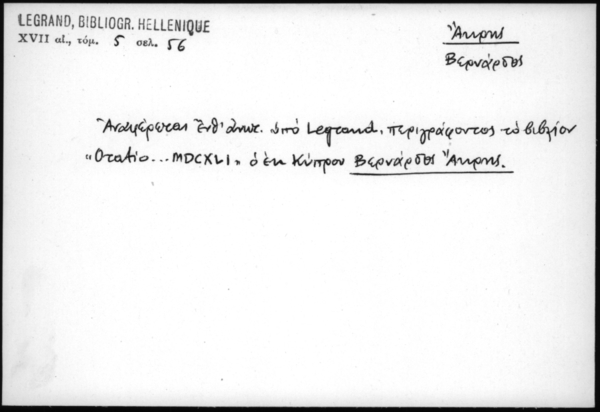 LEGRAND, BIBLIOGR. HELLENIQUE
XVII αἰ., τόμ. 5 σελ. 56
Ἄκρης
Βερνάρδος
Ἀναφέρεται ἔνθ' ἀνωτ. ὑπό Legrand, περιγράφοντος τό βιβλίον
"Oratio... MDCXLI" ὁ ἐκ Κύπρου Βερνάρδος Ἄκρης.